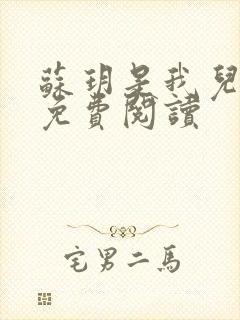 蘇玥是我兒
免費閱讀
宅男二馬